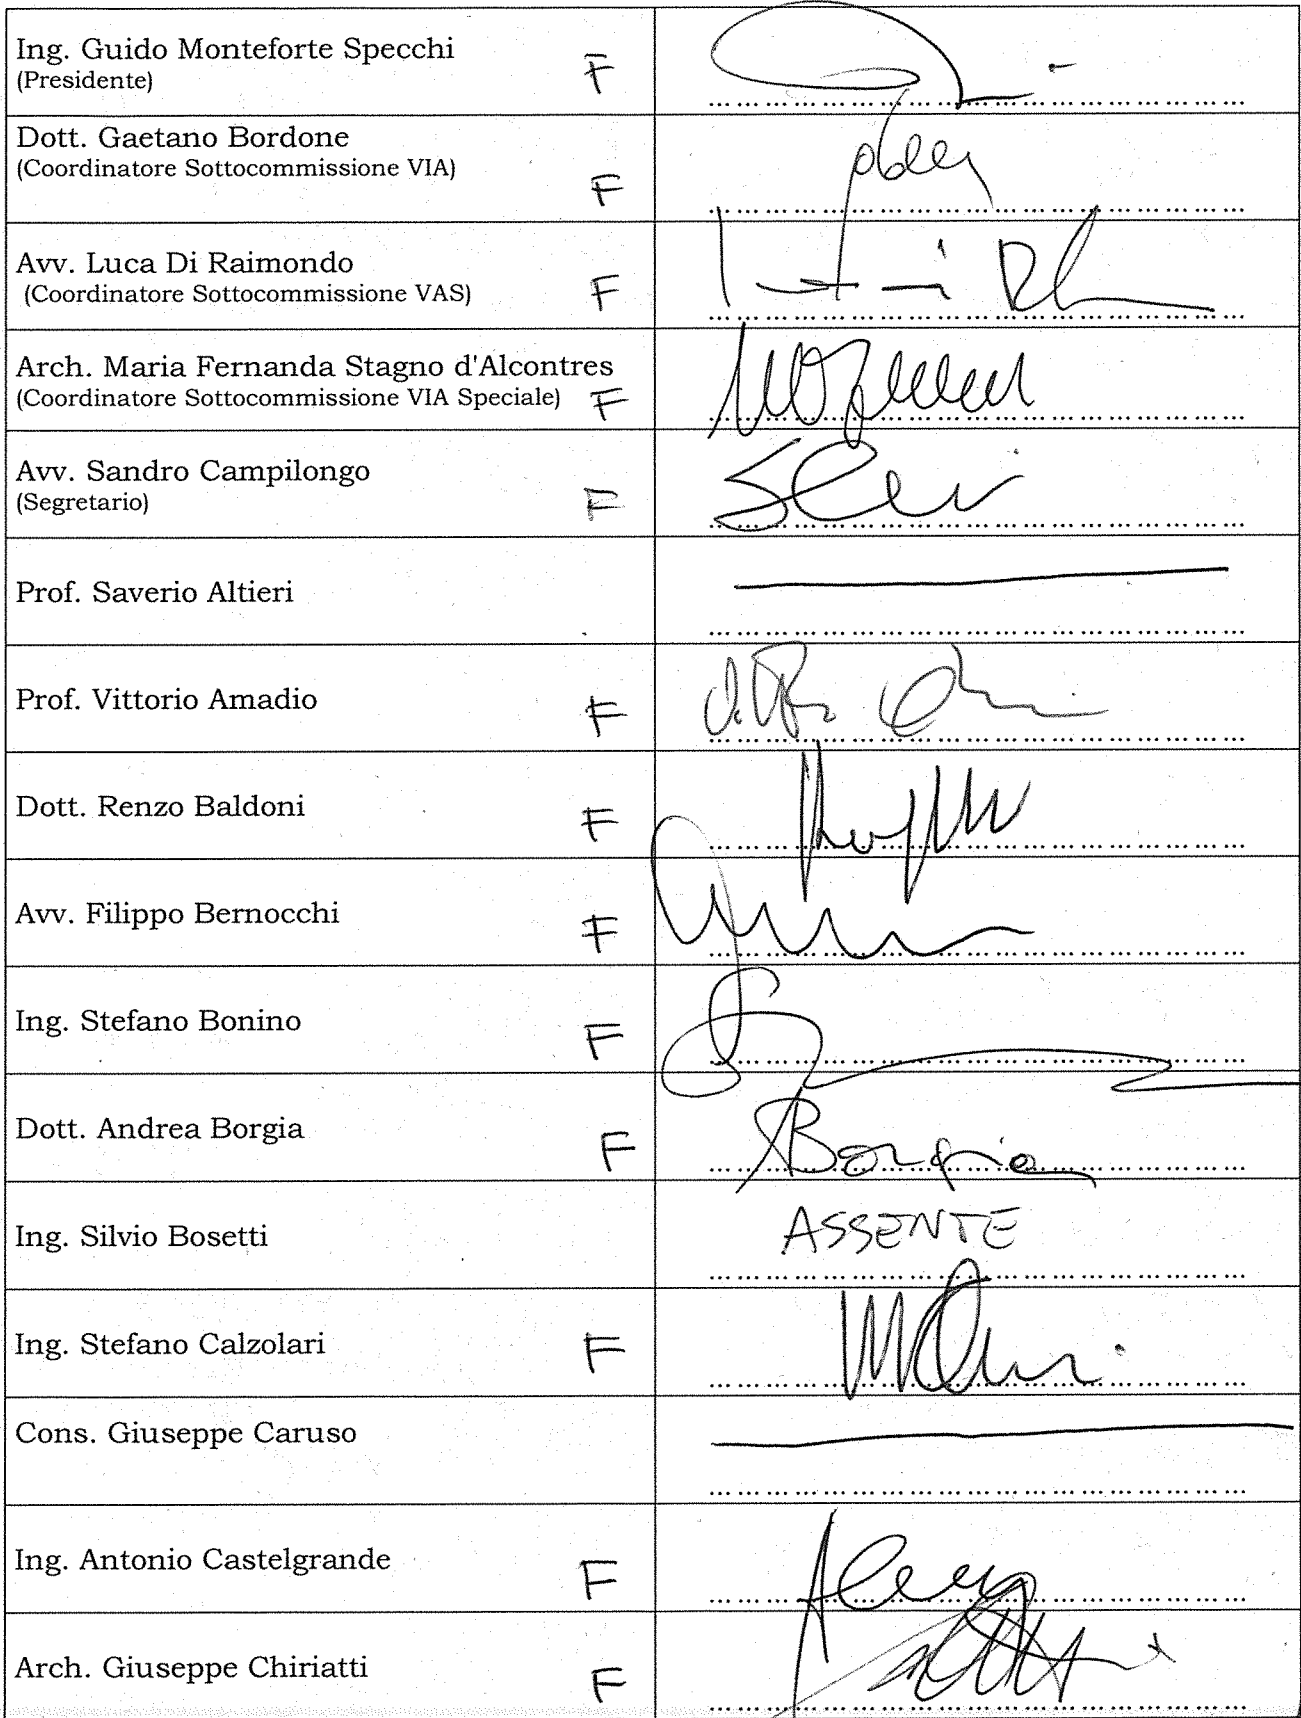 Ing. Guido Monteforte Specchi
(Presidente)
F
Dott. Gaetano Bordone
(Coordinatore Sottocommissione VIA)
F
Avv. Luca Di Raimondo
(Coordinatore Sottocommissione VAS)
F
Arch. Maria Fernanda Stagno d'Alcontres
(Coordinatore Sottocommissione VIA Speciale) F
Avv. Sandro Campilongo
(Segretario)
F
Prof. Saverio Altieri
Prof. Vittorio Amadio F
Dott. Renzo Baldoni F
Avv. Filippo Bernocchi F
Ing. Stefano Bonino F
Dott. Andrea Borgia F Borgia
Ing. Silvio Bosetti ASSENTE
Ing. Stefano Calzolari F
Cons. Giuseppe Caruso
Ing. Antonio Castelgrande F
Arch. Giuseppe Chiriatti F